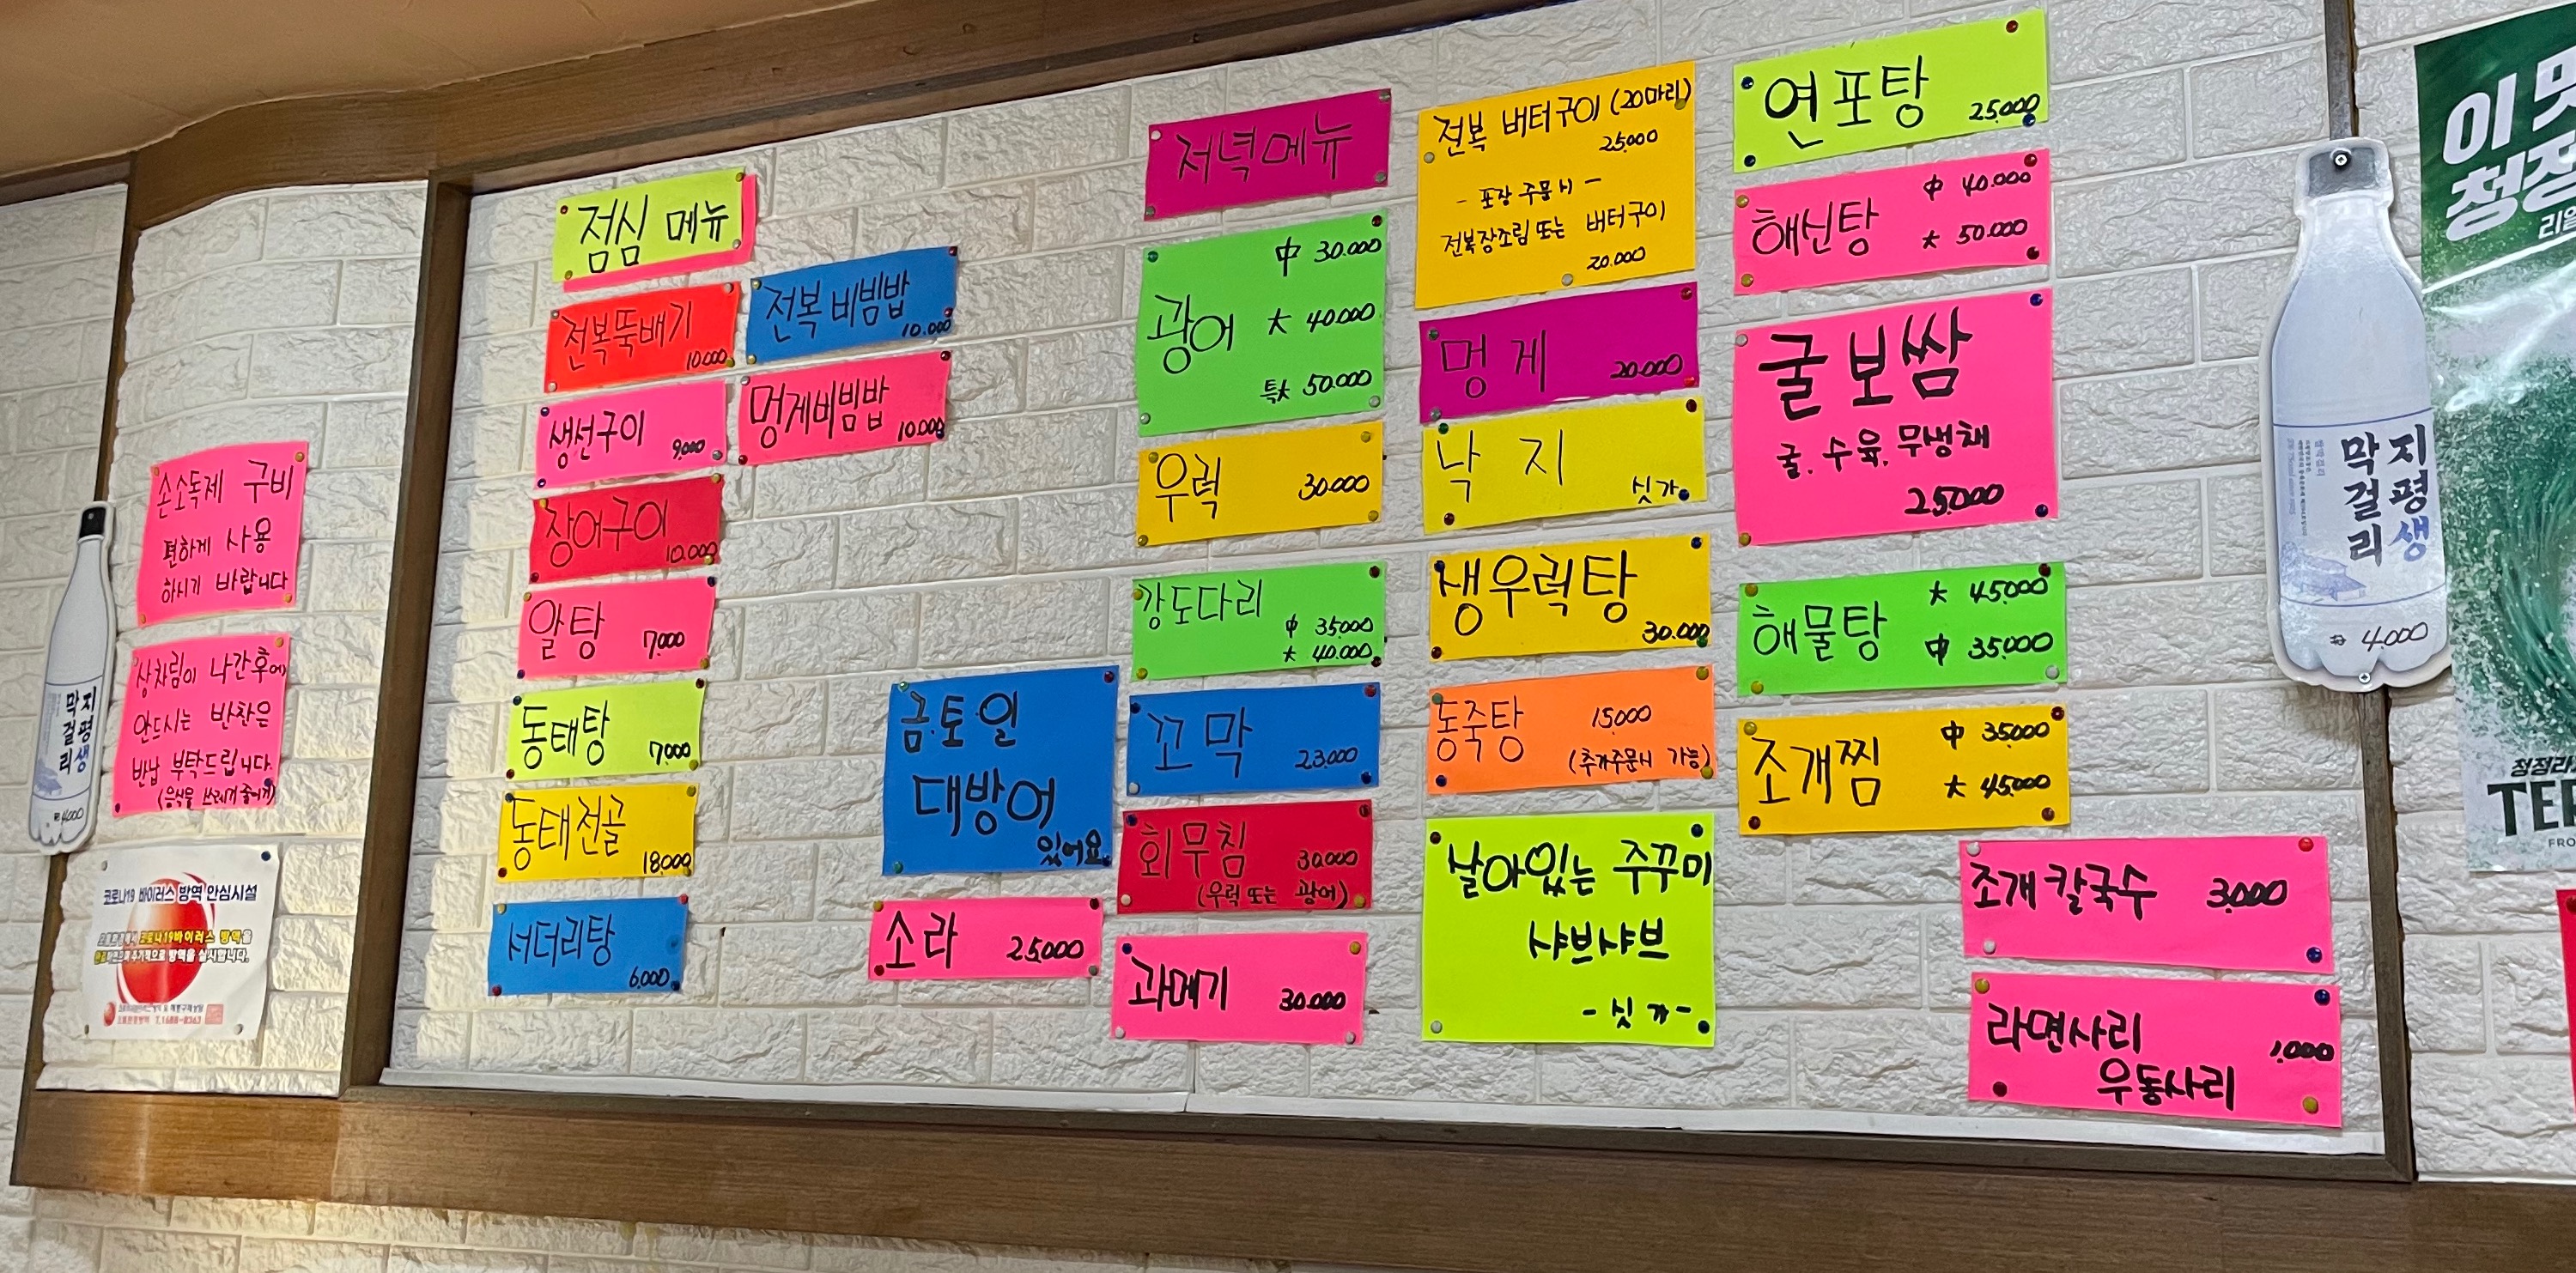 손소독제 구비
편하게 사용
하시기 바랍니다
상차림이 나간후에
안드시는 반찬은
반납 부탁드립니다.
(음식물 쓰레기 줄이기)
지평생
막걸리
₩ 4,000
코로나19 바이러스 방역 안심시설
코로나19바이러스 방역을
주기적으로 방역을 실시합니다.
점심 메뉴
전복뚝배기
10.000
전복 비빔밥
10.000
생선구이
9,000
멍게비빔밥
10.000
장어구이
10.000
알탕
7,000
동태탕
7,000
동태전골
18,000
서더리탕
6,000
금.토.일
대방어
있어요.
소라 25,000
저녁메뉴
中 30.000
광어 大 40.000
특大 50.000
우럭 30.000
강도다리
中 35000
大 40.000
꼬막 23.000
회무침 30.000
(우럭 또는 광어)
과메기 30.000
전복 버터구이 (20마리)
25.000
- 포장 주문시 -
전복장조림 또는 버터구이
20.000
멍게 20.000
낙지 싯가
생우럭탕
30.000
동죽탕 15,000
(추가주문시 가능)
살아있는 주꾸미
샤브샤브
- 싯가 -
연포탕
25.000
해신탕
中 40.000
大 50.000
굴보쌈
굴. 수육. 무생채
25.000
해물탕
大 45.000
中 35.000
조개찜
中 35.000
大 45,000
조개칼국수 3,000
라면사리
우동사리
1,000
지평생
막걸리
₩ 4.000
이 맛
청정
리얼
청정라
TER
FRO